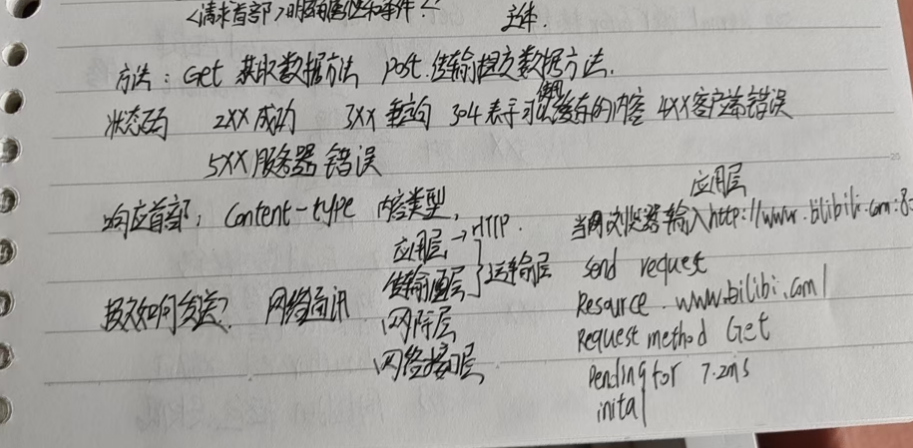 <请求首部>明确属性和事件 < 主体.
方法：Get 获取数据方法 Post.传输提交数据方法.
状态码 2XX成功 3XX重向 304表于可以使用缓存的内容 4XX客户端错误
5XX服务器错误
响应首部：Content-type 内容类型,
应用层→HTTP.
传输层 } 运输层
网际层
网络接口层
报文如何发送? 网络通讯
应用层
当网页浏览器输入http://www.bilibili.com:8
Send request
Resource. www.bilibi.com/
Request method Get
Pending for 7.2ms
inital